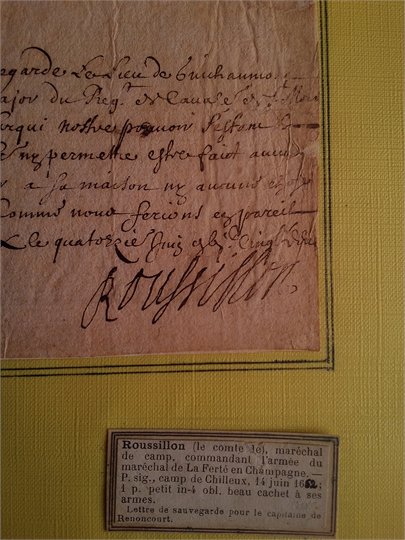 egarde Le Lieu de
ajor du Reg.t de Caval
rqui nostre pouvoir s'estant
ny permettre estre faict aucun
a sa maison ny aucune
Comme nous ferions en pareil
Le quatorzie Juin
Roussillon
Roussillon (le comte de), maréchal
de camp, commandant l'armée du
maréchal de La Ferté en Champagne.—
P. sig., camp de Chilleux, 14 juin 1652;
1 p. petit in-4 obl. beau cachet à ses
armes.
Lettre de sauvegarde pour le capitaine de
Renoncourt.